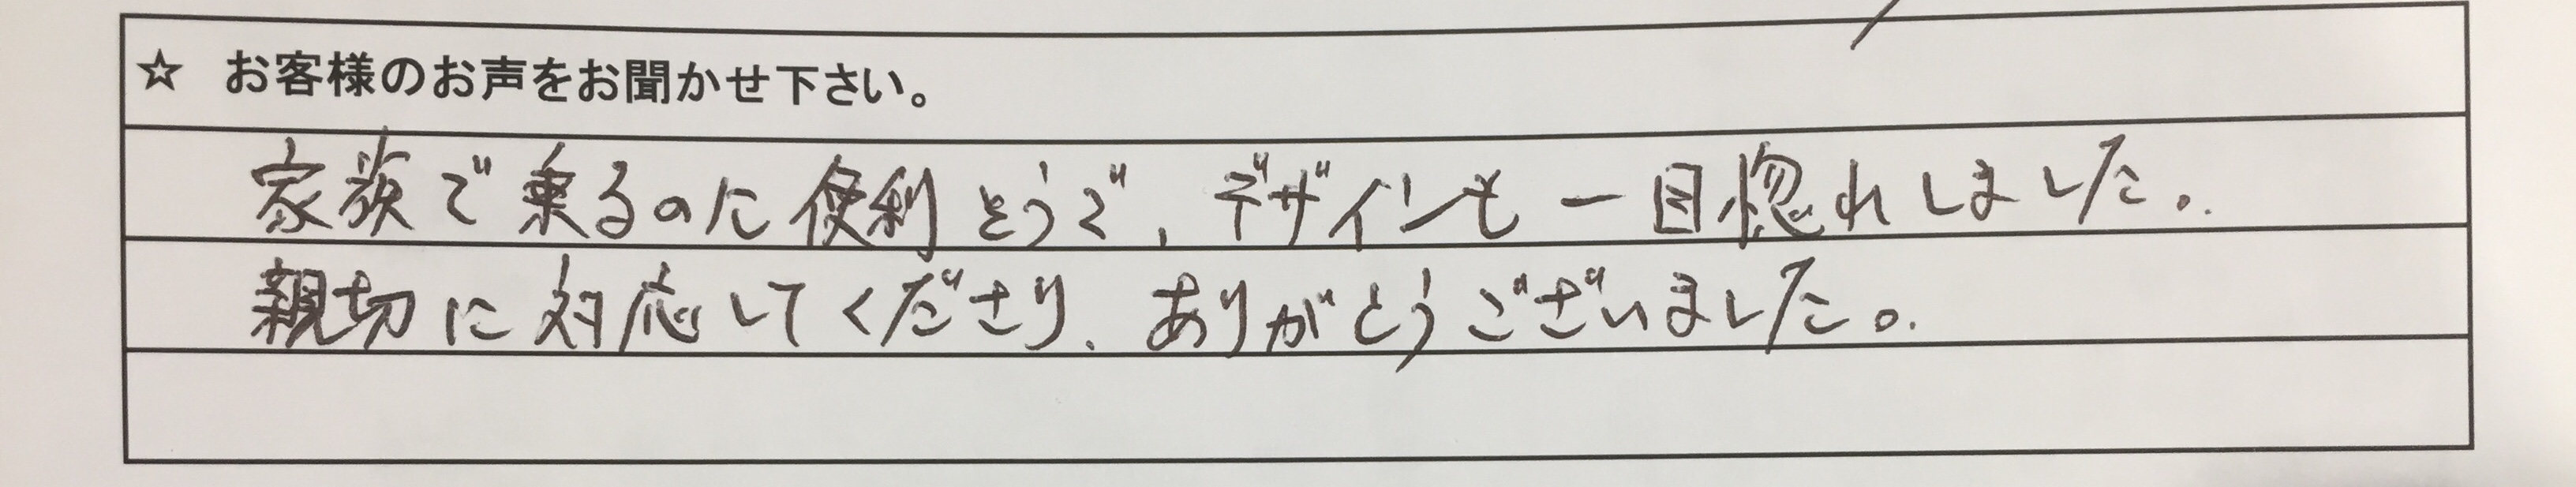 ☆ お客様のお声をお聞かせ下さい。
家族で乗るのに便利そうで、デザインも一目惚れしました。
親切に対応してくださり、ありがとうございました。